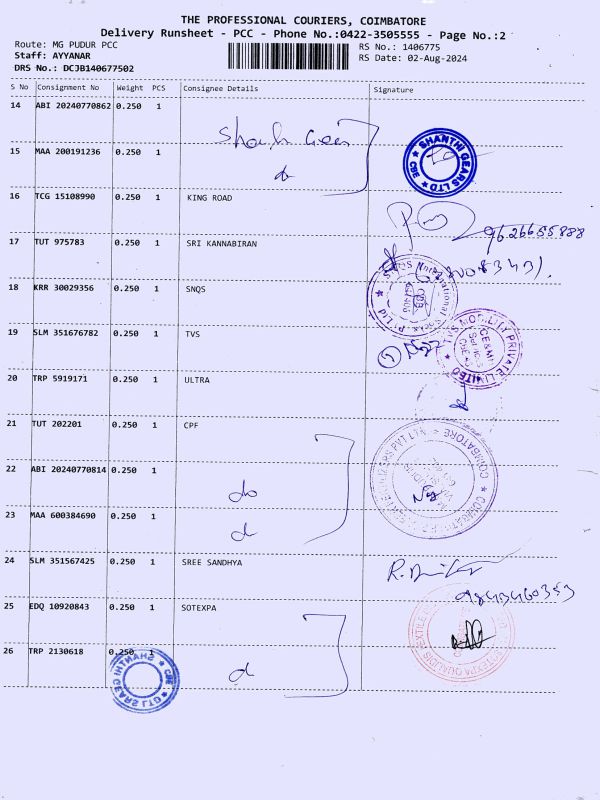 THE PROFESSIONAL COURIERS, COIMBATORE
Delivery Runsheet - PCC - Phone No.:0422-3505555 - Page No.:2
Route: MG PUDUR PCC RS No.: 1406775
Staff: AYYANAR RS Date: 02-Aug-2024
DRS No.: DCJB140677502
S No Consignment No Weight PCS Consignee Details Signature
14 ABI 20240770862 0.250 1
SHANTHI GEARS LTD CBE
15 MAA 200191236 0.250 1 do
16 TCG 15108990 0.250 1 KING ROAD
9626655888
17 TUT 975783 0.250 1 SRI KANNABIRAN
18 KRR 30029356 0.250 1 SNQS
SNQS International
19 SLM 351676782 0.250 1 TVS
MOBILITY PRIVATE LIMITED
20 TRP 5919171 0.250 1 ULTRA
21 TUT 202201 0.250 1 CPF
COIMBATORE
22 ABI 20240770814 0.250 1 do
23 MAA 600384690 0.250 1 do
24 SLM 351567425 0.250 1 SREE SANDHYA
25 EDQ 10920843 0.250 1 SOTEXPA
26 TRP 2130618 0.250 1 do
SHANTHI GEARS LTD CBE